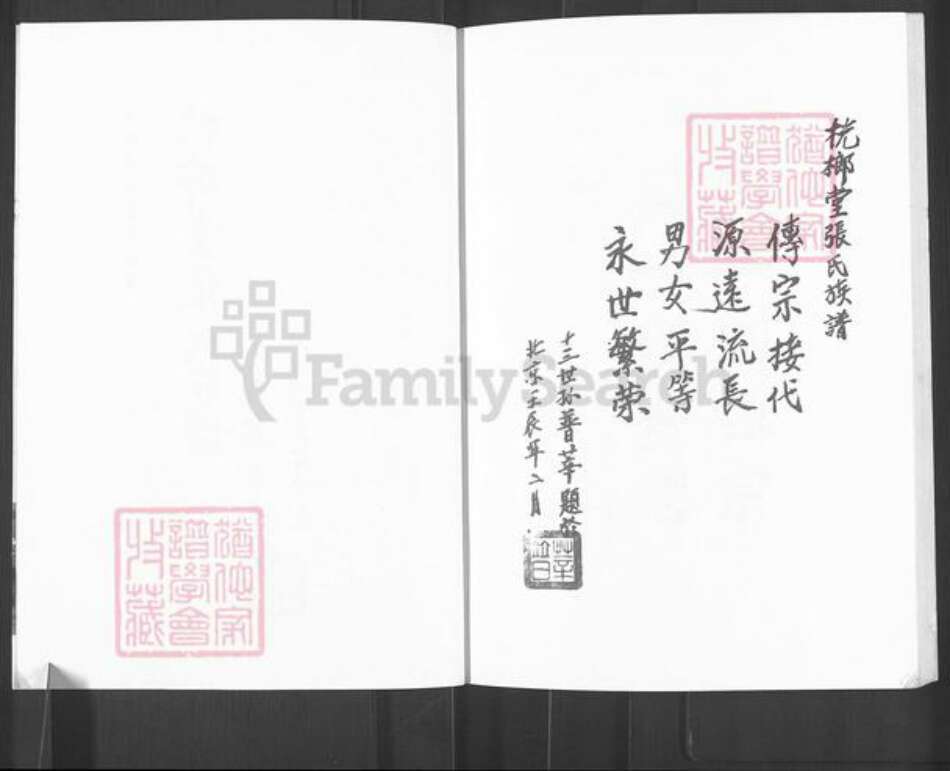 桄榔堂張氏族譜
傳宗接代
源遠流長
男女平等
永世繁荣
十三世孙普華題於
北京壬辰年二月
華普
猶他家譜學會收藏
猶他家譜學會收藏
FamilySearch